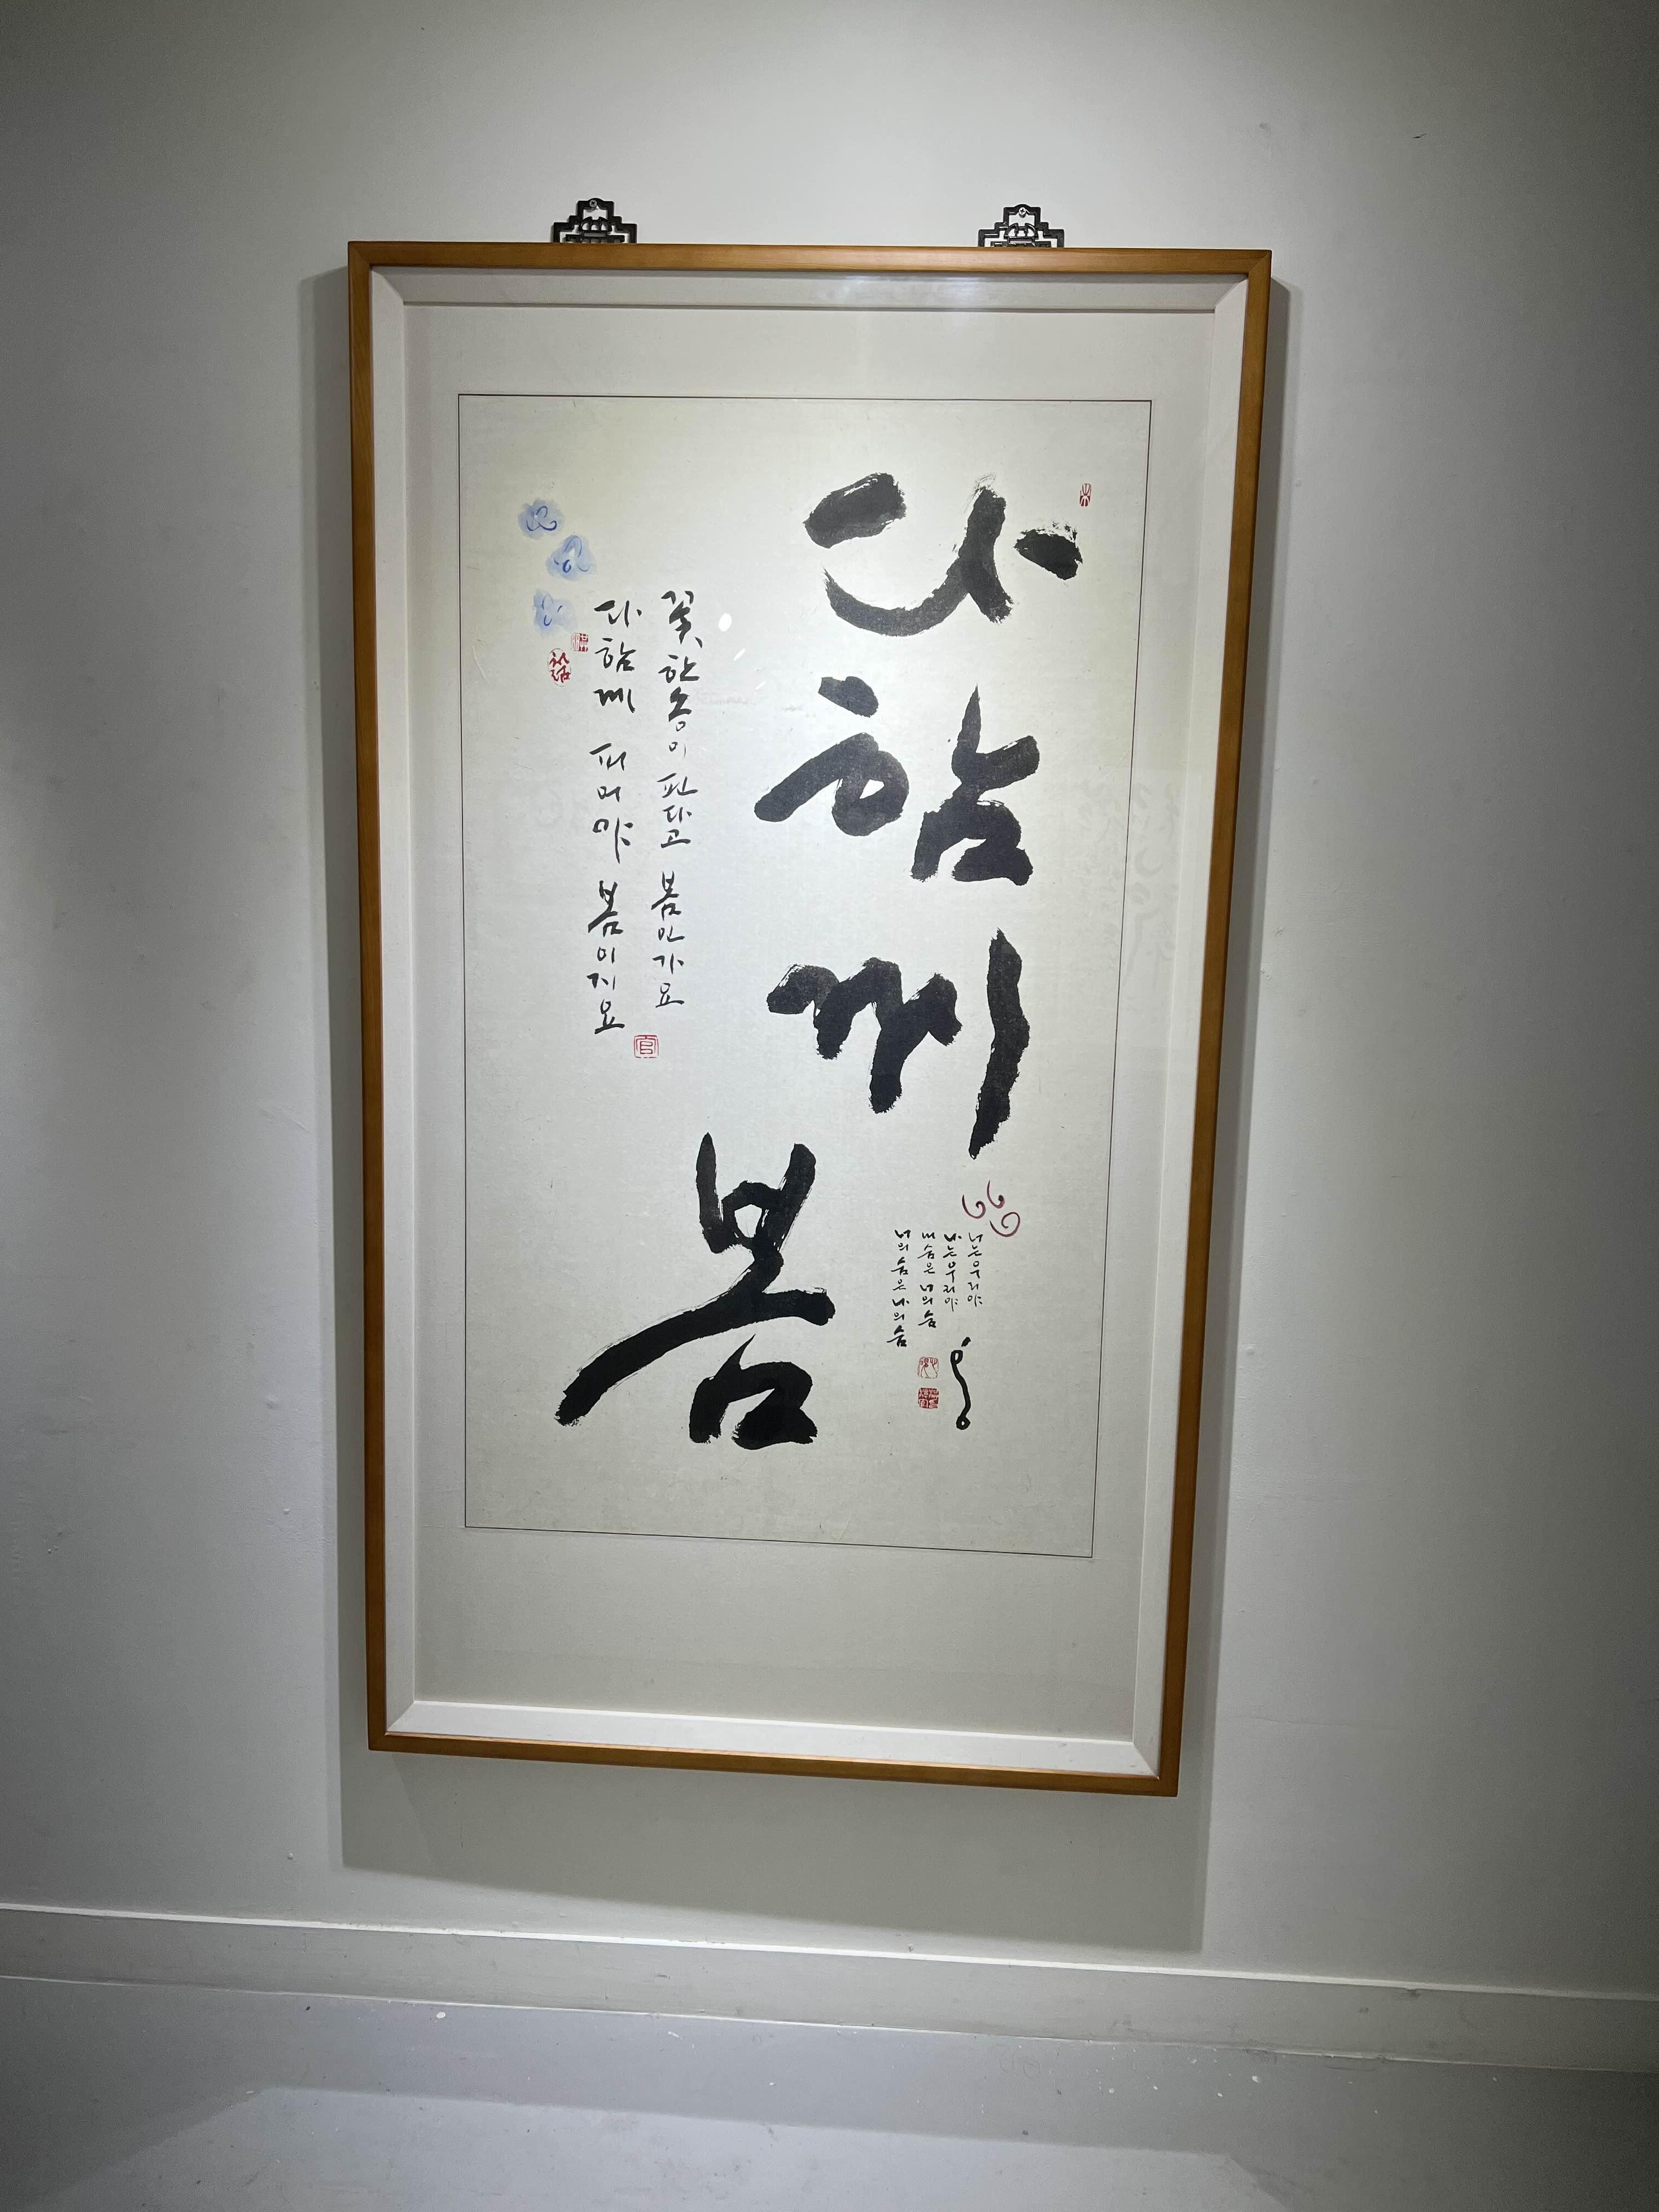 다함께
봄
너는우리야
나는우리야
내숨은 너의숨
너의숨은 나의숨
꽃, 한송이 핀다고 봄인가요
다함께 피어야 봄이지요